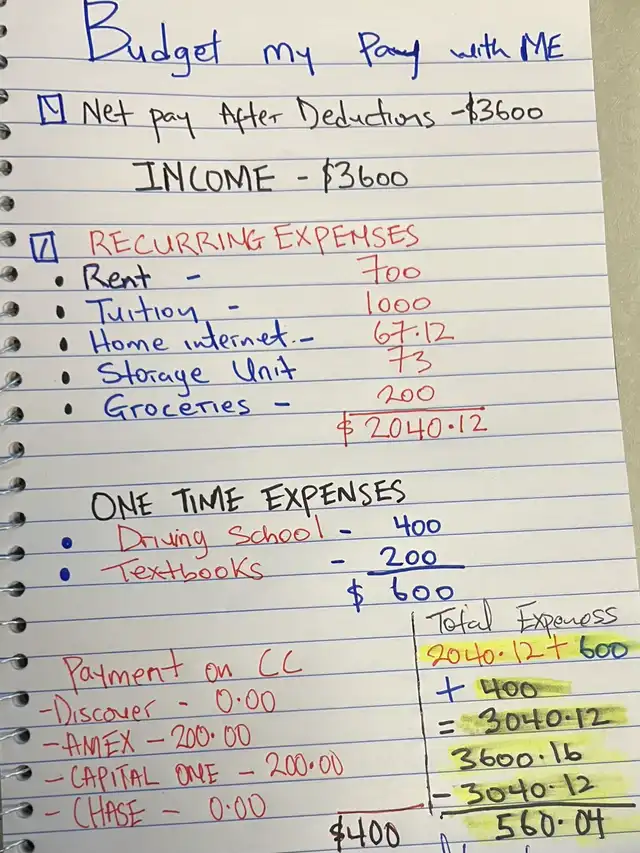 Budget my Pay with ME
Net pay After Deductions - $3600
INCOME - $3600
RECURRING EXPENSES
• Rent - 700
• Tuition - 1000
• Home internet. - 67.12
• Storage Unit 73
• Groceries - 200
$ 2040.12
ONE TIME EXPENSES
• Driving School - 400
• Textbooks - 200
$ 600
Payment on CC
- Discover - 0.00
- AMEX - 200.00
- CAPITAL ONE - 200.00
- CHASE - 0.00
$400
Total Expeness
2040.12 + 600
+ 400
= 3040.12
3600.16
- 3040.12
560.04